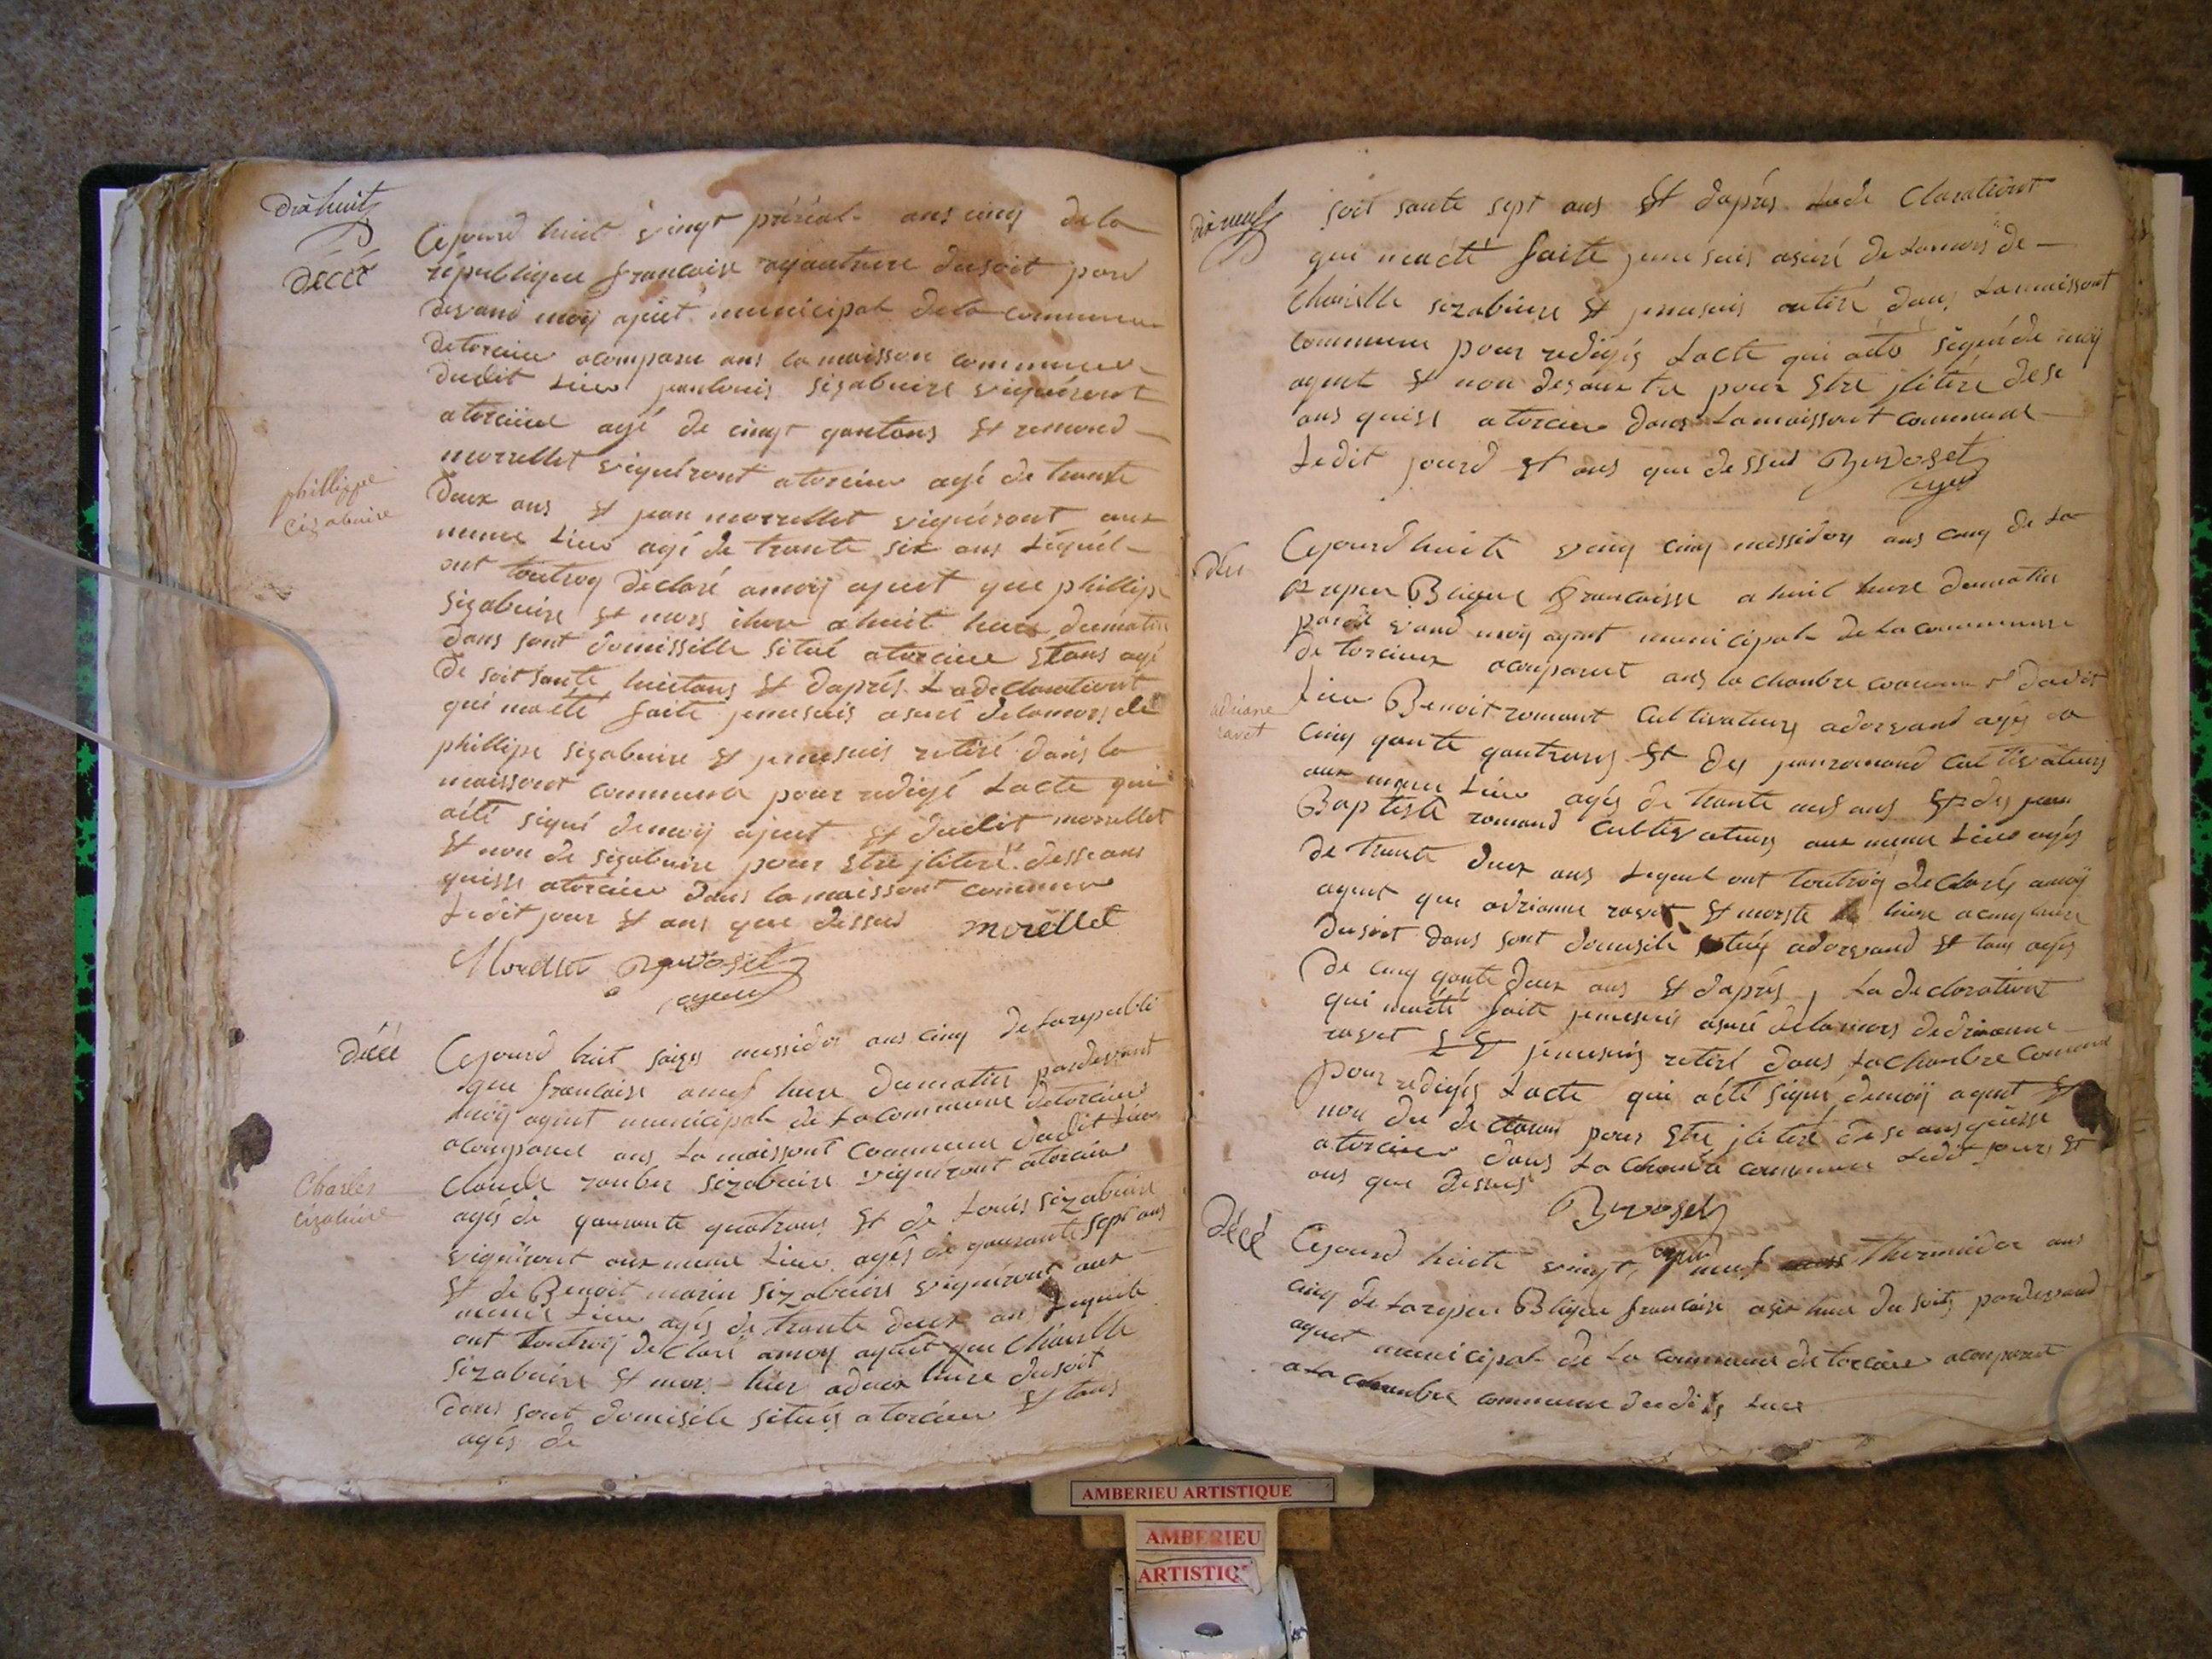 dixhuit
décéé
Cejourd huit vingt prérial ans cinq de la
république francoise dusoit pard
devand moÿ ajent municipal de la commune
detorcieu acomparu ans la maisson commune
dudit Lieu jeanlouis sizabuire vigniéront
atorcieu agé de cingt gantans et remond
morrellet vigniéront atorcieu agé de trante
deux ans et jean morrellet vigniéront aux
meme Lieu agé de trante six ans Lequél
ont toutroy déclaré amoÿ ajent que phillipe
phillippe
cizabuire
sizabuire et mors ihere ahuit hure dumatin
dans sont domissille situé atorcieu étans agé
de soitsante huitans et daprés Ladeclarationt
qui maété faite jemesuis asuré delamors de
phillipe sizabuire et jemesuis retiré dans la
maissont commune pour redigé Lacte qui
aété signé demoÿ ajent et dudit morrellet
et non de sizabuire pour etre jlitéré desseans
quisse atorcieu dans la maissont commune
Ledit jour et ans que dessus morellet
Morellet
agent
décéé
Cejourd huit saize messidor ans cinq de Larepubli
que francoise aneuf hure dumatin pardevant
moÿ agent municipal de Lacommune detorcieu
acomparut ans La maissont Commune dudit Lieu
Claude sizabuire vigniront atorcieu
agés de quarante quatrans et de Louis sizabuire
Charles
cizabuire
vigniront aux meme Lieu agés de quarante sept ans
et de Benoit marin sizabuire vigniéront aux
meme Lieu agés de trante deux ans Lequile
ont toutroy declaré amoy agent que Charelle
sizabuire et mors hier adeux hure dusoit
dans sont domisile situés atorcieu et tans
agés de
dixneuf
soit sante sept ans et daprés Lade Clarationt
qui maété faite jemesuis asuré delamors de
Charelle sizabuire et jemesuis retiré dans Lamaissont
commune pour redigés Lacte qui aété signé de moÿ
agent et non des autre pour etre jlitéré dese
ans quise atorcieu dans Lamaissont commune
Ledit jourd et ans que dessus
agent
Cejourd huite vinq cinq messidor ans cinq de La
repeu Blique francoisse a huit hure dumatin
pardevand moÿ agent municipale de Lacommune
de torcieux acomparut ans la chambre commune dudit
Lieu Benoit romant Cultivateurs adorvand agés de
adriane
ravet
cinq gante gautrans et des jeanromand Cultivateurs
aux meme Lieu agés de trante neuf ans et des jean
Baptiste romand Cultivateurs aux meme Lieu agés
de trante deux ans Lequel ont toutroy declarés amoÿ
agent que adrianne ravet et morste hiere acinq hure
dusoit dans sont domisile situés adorvand et tans agés
de cinq gante deux ans et daprés La declarationt
qui maété faite jemesuis asuré delamors dedrianne
ravet et jemesuis retiré dans Lachambre Commune
pour redigés Lacte qui aété signé demoÿ agent et
non de pour etre jlitéré dese ans quisse
atorcieu dans La Chambre commune Ledit jours et
ans que dessus
agent
décéé
Cejourd huite vingt neuf Thermidor ans
cinq de Larepeu Blique francoise asix hure du soits pardevand
agent municipal de La commune de torcieu acomparut
a La chambre commune dudits Lieu
AMBERIEU ARTISTIQUE
AMBERIEU
ARTISTIQ